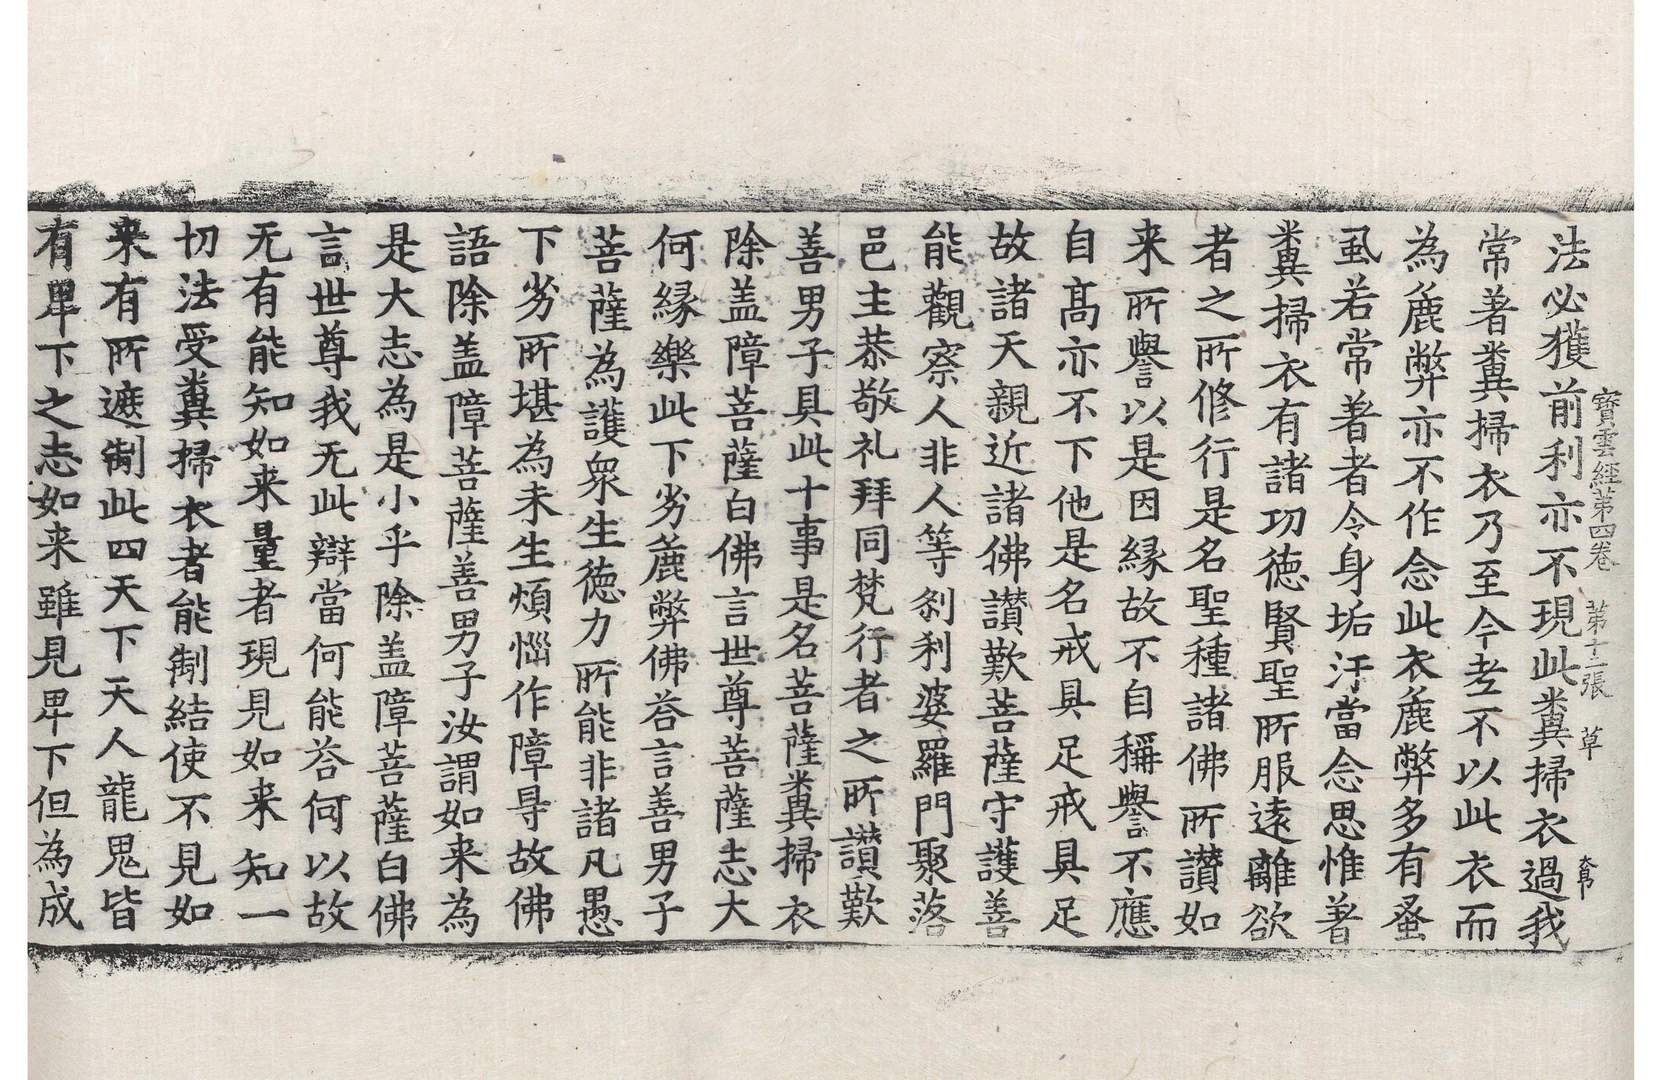 寳雲經第四卷 第十二張 草
法必獲前利亦不現此糞掃衣過我
常著糞掃衣乃至今老不以此衣而
為麁弊亦不作念此衣麁弊多有蚤
虱若常著者令身垢汙當念思惟著
糞掃衣有諸功徳賢聖所服遠離欲
者之所修行是名聖種諸佛所讃如
来所譽以是因縁故不自稱譽不應
自髙亦不下他是名戒具足戒具足
故諸天親近諸佛讃歎菩薩守護善
能觀察人非人等刹利婆羅門聚落
邑主恭敬礼拜同梵行者之所讃歎
善男子具此十事是名菩薩糞掃衣
除盖障菩薩白佛言世尊菩薩志大
何縁樂此下劣麁弊佛荅言善男子
菩薩為護衆生徳力所能非諸凡愚
下劣所堪為未生煩惱作障㝵故佛
語除盖障菩薩善男子汝謂如来為
是大志為是小乎除盖障菩薩白佛
言世尊我无此辯當何能荅何以故
无有能知如来量者現見如来知一
切法受糞掃衣者能制結使不見如
来有所遮制此四天下天人龍鬼皆
有卑下之志如来雖見卑下但為成